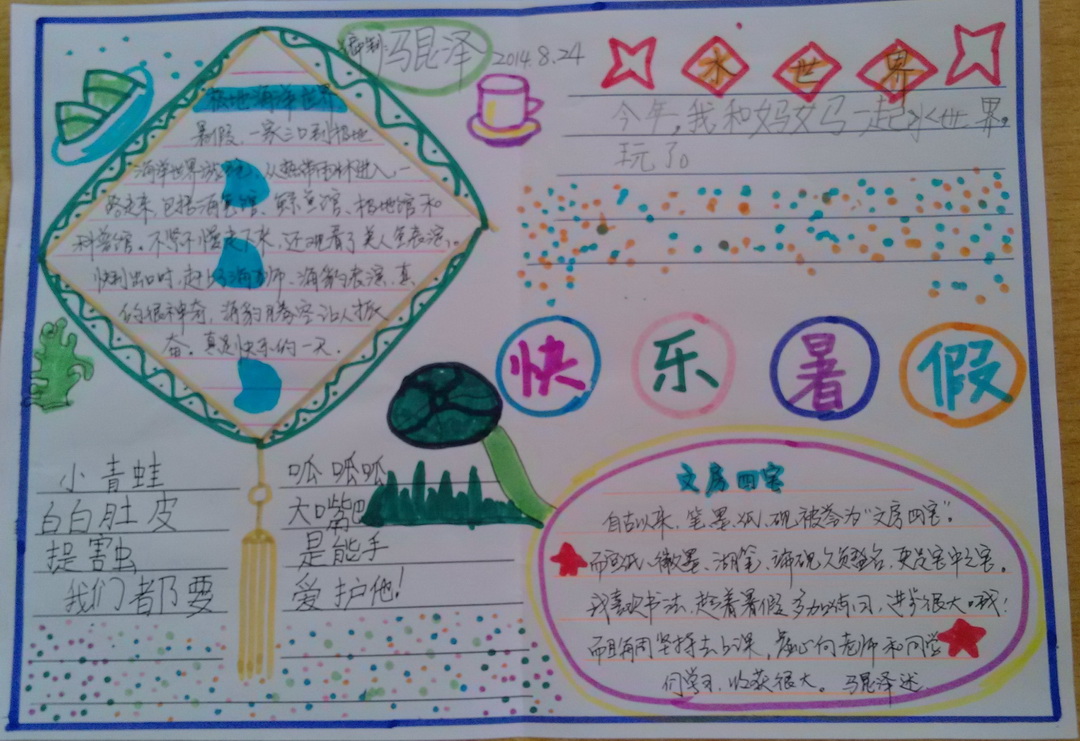 编制:马昆泽 2014.8.24
极地海洋世界
暑假,一家三口到极地
海洋世界游玩,从热带雨林进入,一
路走来,包括海兽馆、鲸鱼馆、极地馆和
科普馆。不紧不慢走下来,还观看了美人鱼表演。
快到出口时,赶上海狮、海豹表演,真
的很神奇,海豹腾空让人振
奋。真是快乐的一天.
水世界
今年,我和妈妈一起水世界。
玩了。
快乐暑假
小青蛙 呱呱呱
白白肚皮 大嘴吧
捉害虫 是能手
我们都要 爱护他!
文房四宝
自古以来,笔、墨、纸、砚被誉为“文房四宝”。
而宣纸、徽墨、湖笔、端砚久负盛名,更是宝中之宝。
我喜欢书法,趁着暑假多加练习,进步很大哦!
而且每周坚持去上课,虚心向老师和同学
们学习,收获很大。 马昆泽述